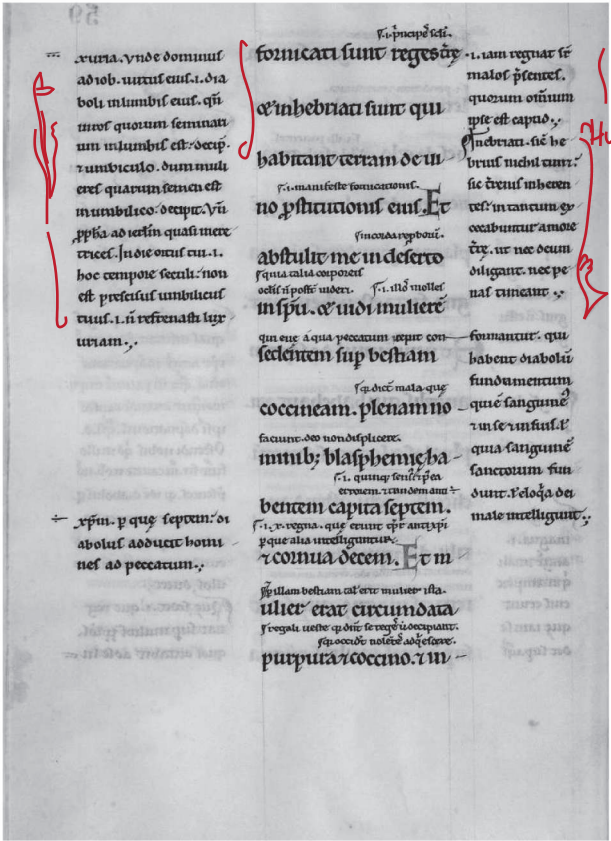 .xuria. Vnde dominus
ad iob. uirtus eius .i. dia
boli in lumbis eius. qn̄
quorum seminari
um in lumbis est. decip̄.
⁊ umbiculo. dum muli
eres quarum semen est
in umbilico. decipit. Vn̄
ꝓpħa ad ierl̄m quasi mere
trices. In die ortus tui .i.
hoc tempore seculi. non
est p̄scisus umbilicus
tuus .i. n̄ refrenasti lux
uriam.
xp̄m. ꝑ quę septem. di
abolus adducit homi
nes ad peccatum.
.i. p̄ncipes scl̄i.
fornicati sunt reges tr̄ę
& inhebriati sunt qui
habitant terram de ui
.i. manifeste fornicationis.
no ꝓstitutionis eius. Et
in corda reproborū.
abstulit me in deserto
quia talia corporeis
oculis n̄ poss̄t uideri. .i. illos molles
in sp̄u. & uidi mulierē
qui eue a qua peccatum cepit con
sedentem sup̄ bestiam
dic̄t mala quę
coccineam. plenam no
faciunt. deo non displicere.
minib; blasphemię ha
.i. quinq; sensꝰ
errorem. ⁊ tandem anti
bentem capita septem.
.i. x. regna. quę erunt tp̄r antixp̄i
ꝑ que alia intelliguntur.
⁊ cornua decem. Et m
illam bestiam tal' erit mulier ista.
ulier erat circumdata
regali ueste se regē decipiant.
purpura ⁊ coccino. ⁊ in
.i. iam regnat sr̄
malos p̄sentes.
quorum omnium
ipse est caput.
Inebriati. sic̄ he
brius nichil timꝫ.
sic t̄renis inheren
tes. in tantum ex
cecabuntur amore
tr̄ę. ut nec deum
diligant. nec pe
nas timeant.
fornantur. qui
habent diabolū
fundamentum
sanguineꝰ
⁊ in se ⁊ in suis.
quia sanguinē
sanctorum fun
dunt. ł eloq̄a dei
male intelligunt.